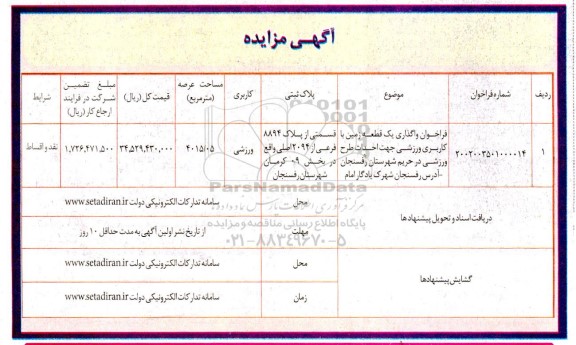 آگهی مزایده
ردیف
شماره فراخوان
موضوع
پلاک ثبتی
کاربری
مساحت عرصه (مترمربع)
قیمت کل (ریال)
مبلغ تضمین شرکت در فرایند ارجاع کار (ریال)
شرایط
۱
۲۰۰۲۰۰۳۵۰۱۰۰۰۰۱۴
فراخوان واگذاری یک قطعه زمین با
کاربری ورزشی جهت احداث طرح
ورزشی در حریم شهرستان رفسنجان
-آدرس رفسنجان شهرک یادگار امام
قسمتی از پلاک ۸۸۹۴
فرعی از ۲۰۹۴ اصلی واقع
در بخش ۰۹ کرمان
شهرستان رفسنجان
ورزشی
۴۰۱۵/۰۵
۳۴,۵۲۹,۴۳۰,۰۰۰
۱,۷۲۶,۴۷۱,۵۰۰
نقد و اقساط
دریافت اسناد و تحویل پیشنهادها
محل
سامانه تدارکات الکترونیکی دولت www.setadiran.ir
مهلت
از تاریخ نشر اولین آگهی به مدت حداقل ۱۰ روز
گشایش پیشنهادها
محل
سامانه تدارکات الکترونیکی دولت www.setadiran.ir
زمان
سامانه تدارکات الکترونیکی دولت www.setadiran.ir
ParsNamadData
پایگاه اطلاع رسانی مناقصه و مزایده
۰۲۱-۸۸۳۴۹۶۷۰-۵